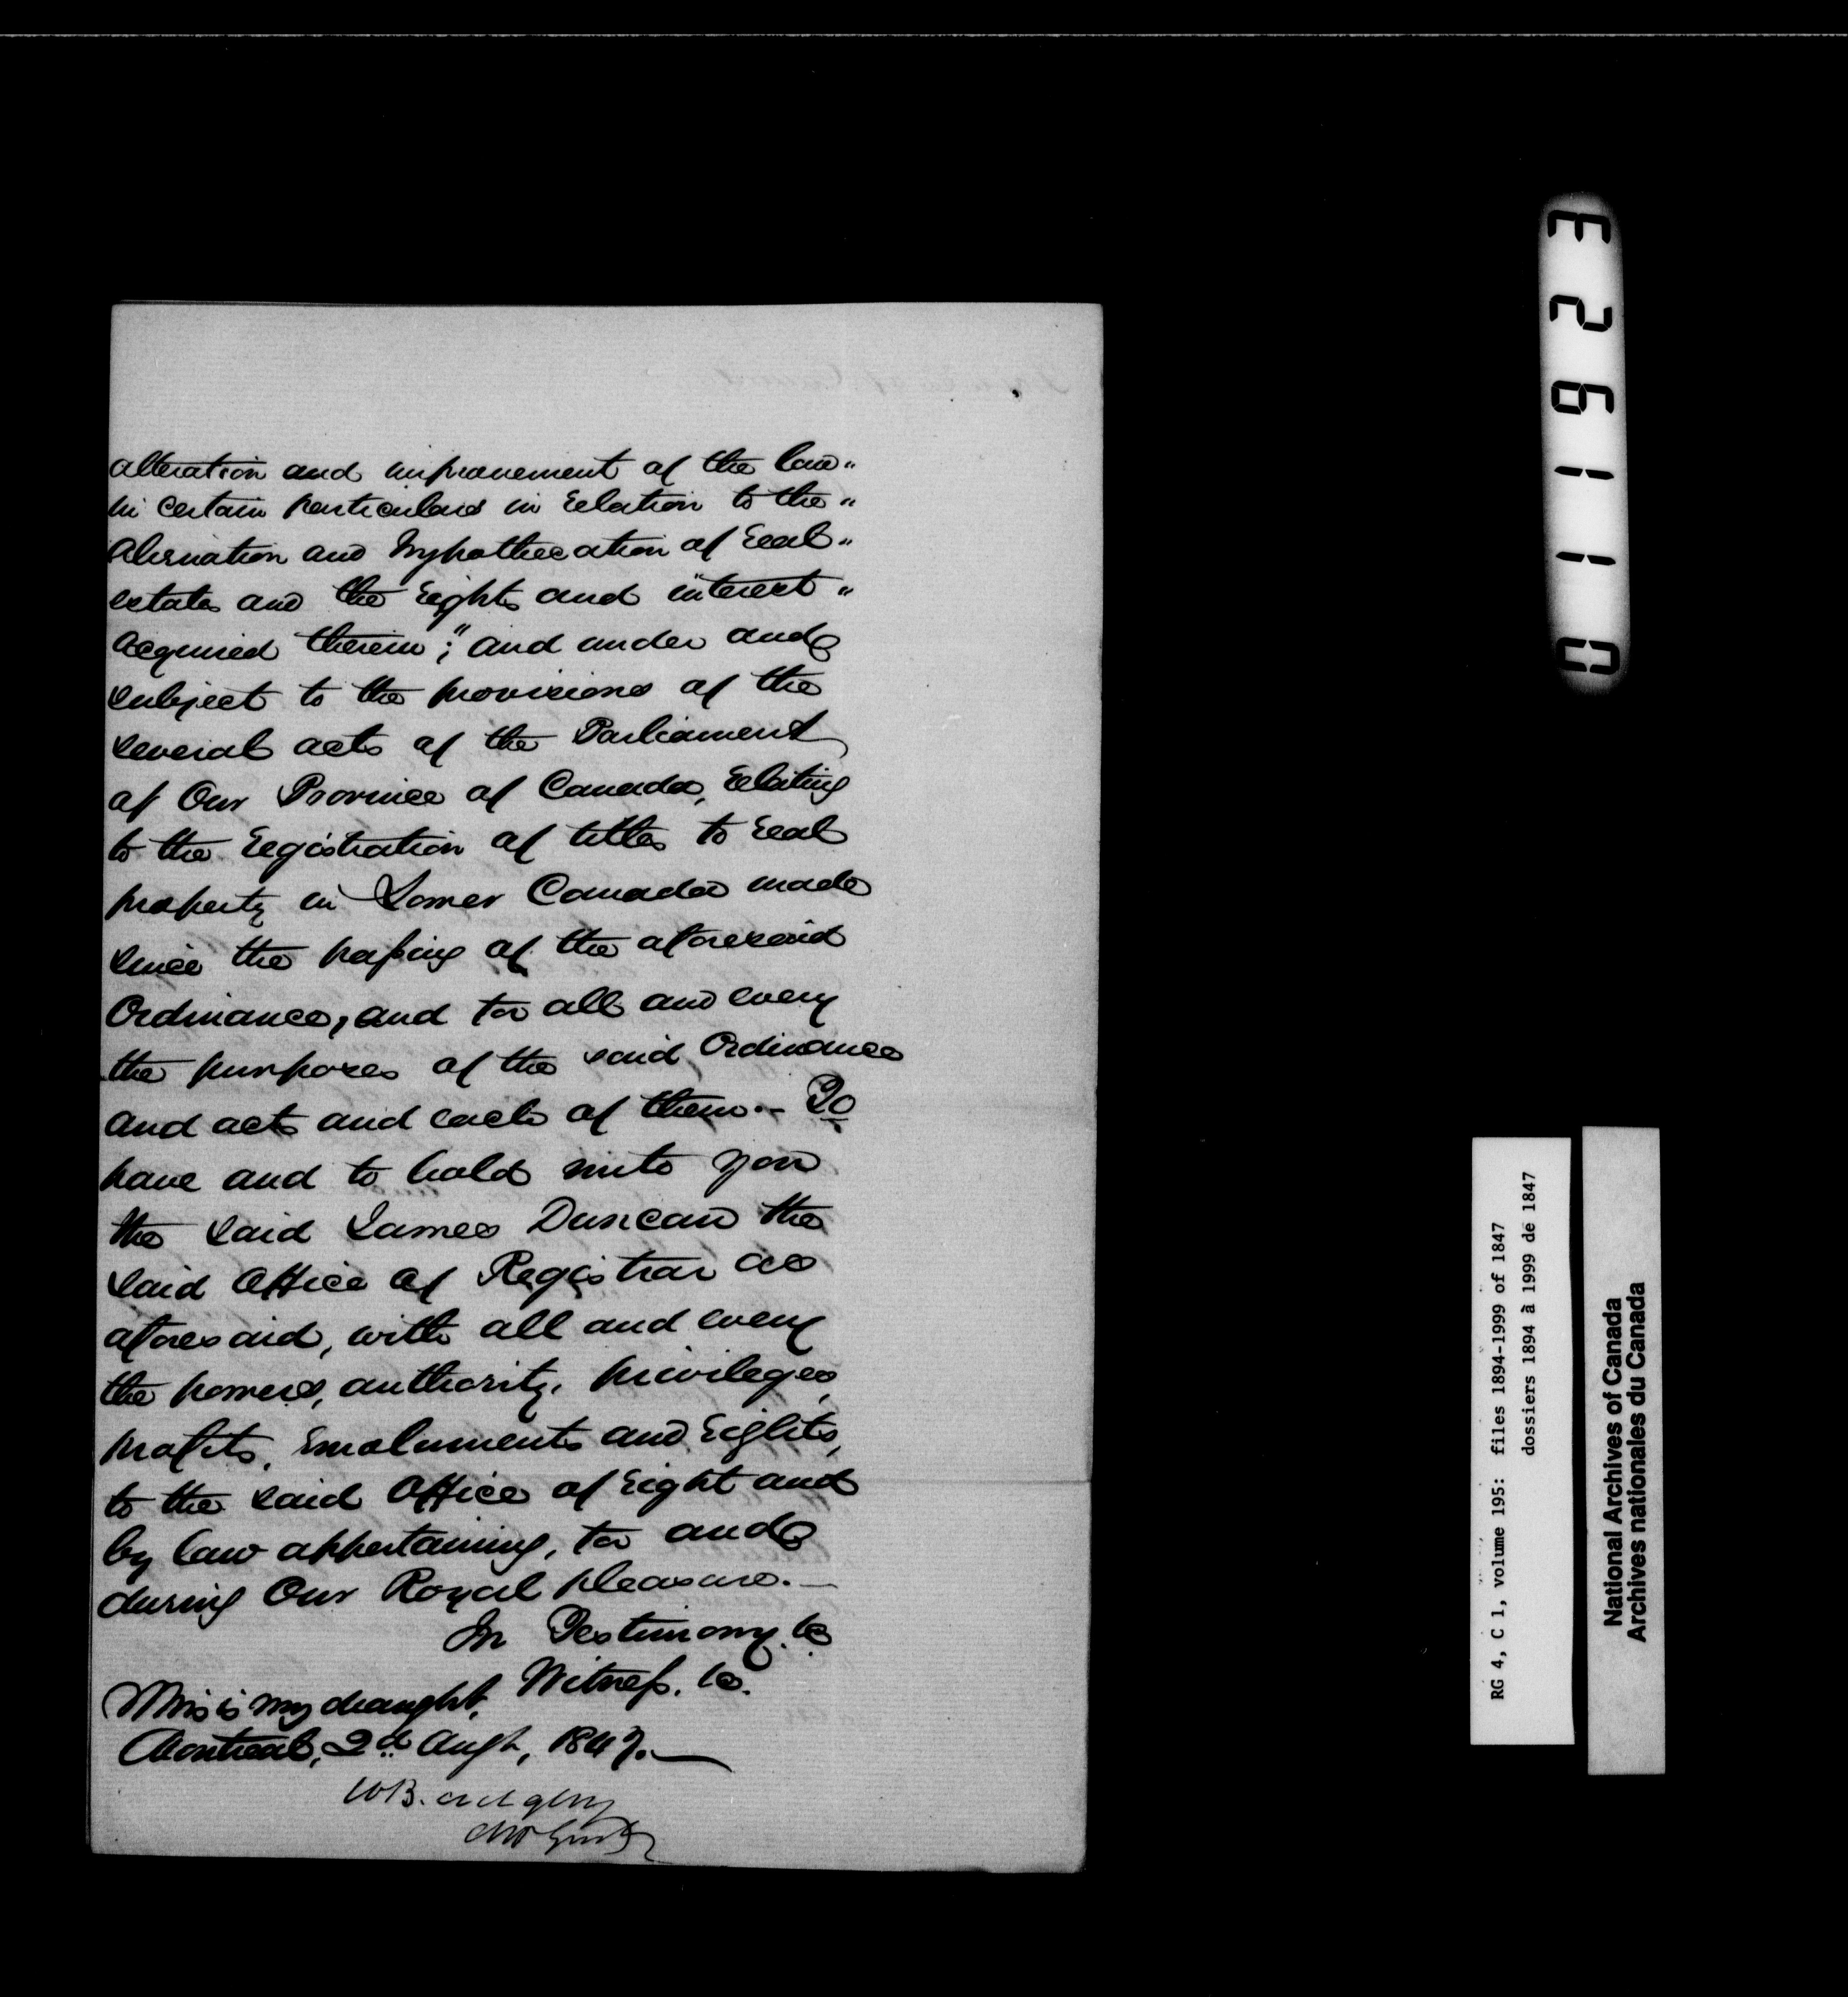 alteration and improvement of the law "
in certain particulars in relation to the "
Alienation and Hypothecation of real "
estate and the rights and interest "
acquired therein ;" and under and
subject to the provisions of the
several acts of the Parliament
of Our Province of Canada, relating
to the registration of titles to real
property in Lower Canada made
since the passing of the aforesaid
Ordinance, and for all and every
the purposes of the said Ordinance
and acts and each of them. - To
have and to hold unto you
the said James Duncan the
said Office of Registrar as
aforesaid, with all and every
the powers, authority, privileges,
profits, Emoluments and rights,
to the said Office of right and
by law appertaining, for and
during Our Royal pleasure. —
In Testimony &c
Witness. &c.
This is my draught,
Montreal, 2d Augt, 1847. —
E26110
RG 4, C 1, volume 195: files 1894-1999 of 1847
dossiers 1894 à 1999 de 1847
National Archives of Canada
Archives nationales du Canada